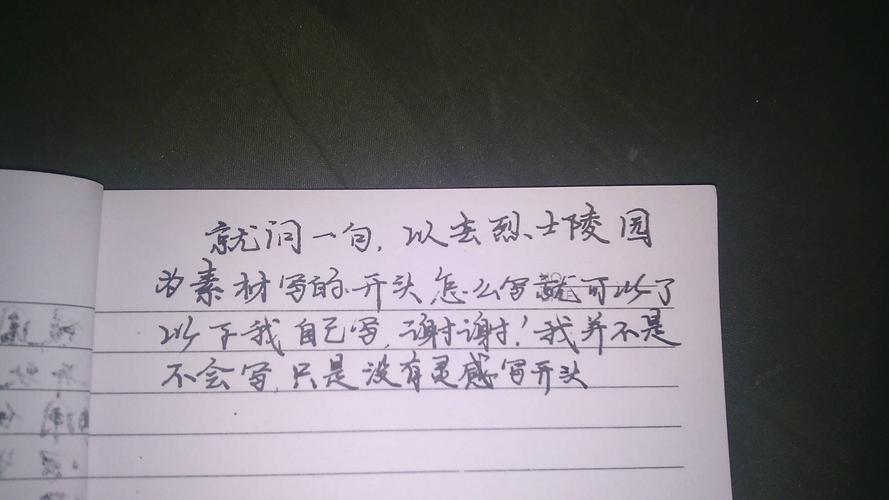 就问一句，以去烈士陵园
为素材写的开头怎么写就可以了
以下我自己写，谢谢！我并不是
不会写，只是没有灵感写开头